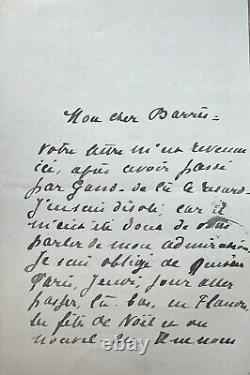 Mon cher Barrès -
votre lettre m'est revenue
ici, après avoir passé
par Gand - de là le retard -
J'en suis désolé, car il
m'eut été doux de vous
parler de mon admiration.
Je suis obligé de quitter
Paris, jeudi, pour aller
passer, là-bas, en Flandre,
les fêtes de Noël et du
nouvel an.